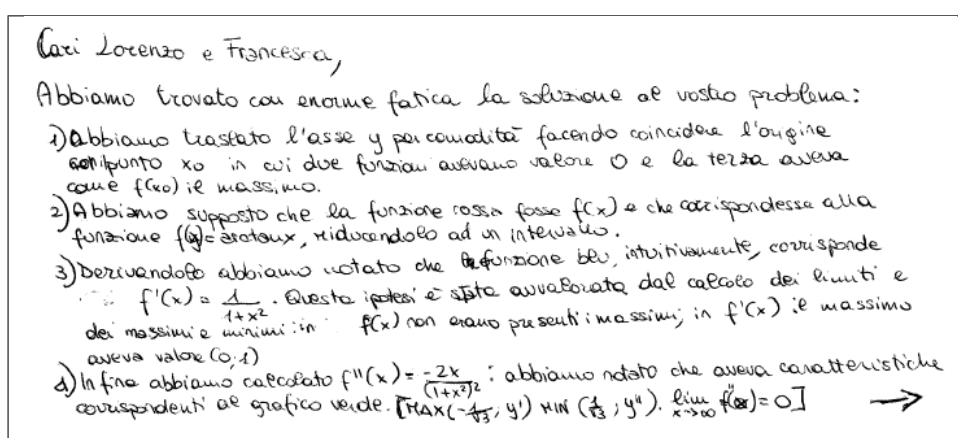 Cari Lorenzo e Francesca,
Abbiamo trovato con enorme fatica la soluzione al vostro problema:
1) Abbiamo traslato l'asse y per comodità facendo coincidere l'origine
punto x0 in cui due funzioni avevano valore 0 e la terza aveva
come f(x0) il massimo.
2) Abbiamo supposto che la funzione rossa fosse f(x) e che corrispondesse alla
funzione f(x)= arctanx, riducendolo ad un intervallo.
3) Derivandolo abbiamo notato che la funzione blu, intuitivamente, corrisponde
f'(x) = 1/(1+x²). Questa ipotesi è stata avvalorata dal calcolo dei limiti e
dei massimi e minimi: in f(x) non erano presenti massimi; in f'(x) il massimo
aveva valore (0;1)
4) Infine abbiamo calcolato f''(x) = -2x/(1+x²)² : abbiamo notato che aveva caratteristiche
corrispondenti al grafico verde. [MAX(-1/√3; y') MIN (1/√3; y''). lim x→∞ f''(x)=0] →